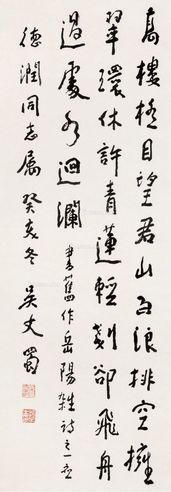 高樓極目望君山白浪排空擁
翠環休許青蓮輕剗卻飛舟
過處水迴瀾 書舊作岳陽雜詩之一應
德潤同志屬 癸亥冬 吳丈蜀